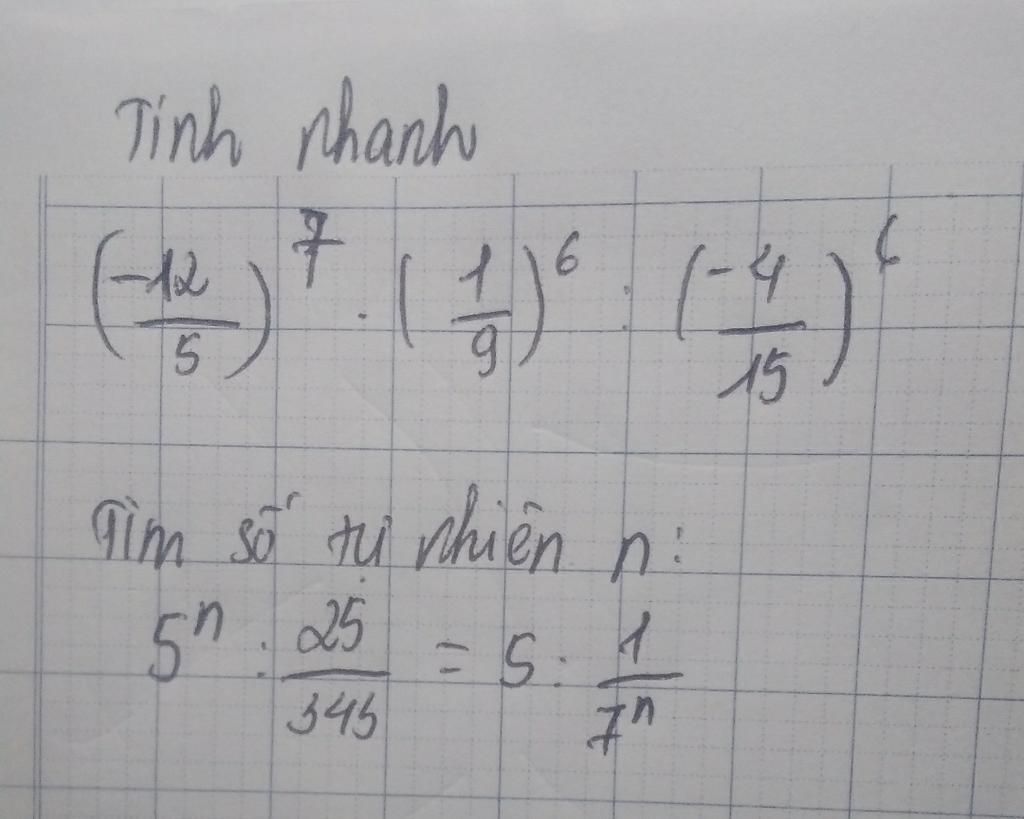 Tính nhanh
(-12/5)^7 . (1/9)^6 : (-4/15)^6
Tìm số tự nhiên n:
5^n : 25/343 = 5 : 1/7^n